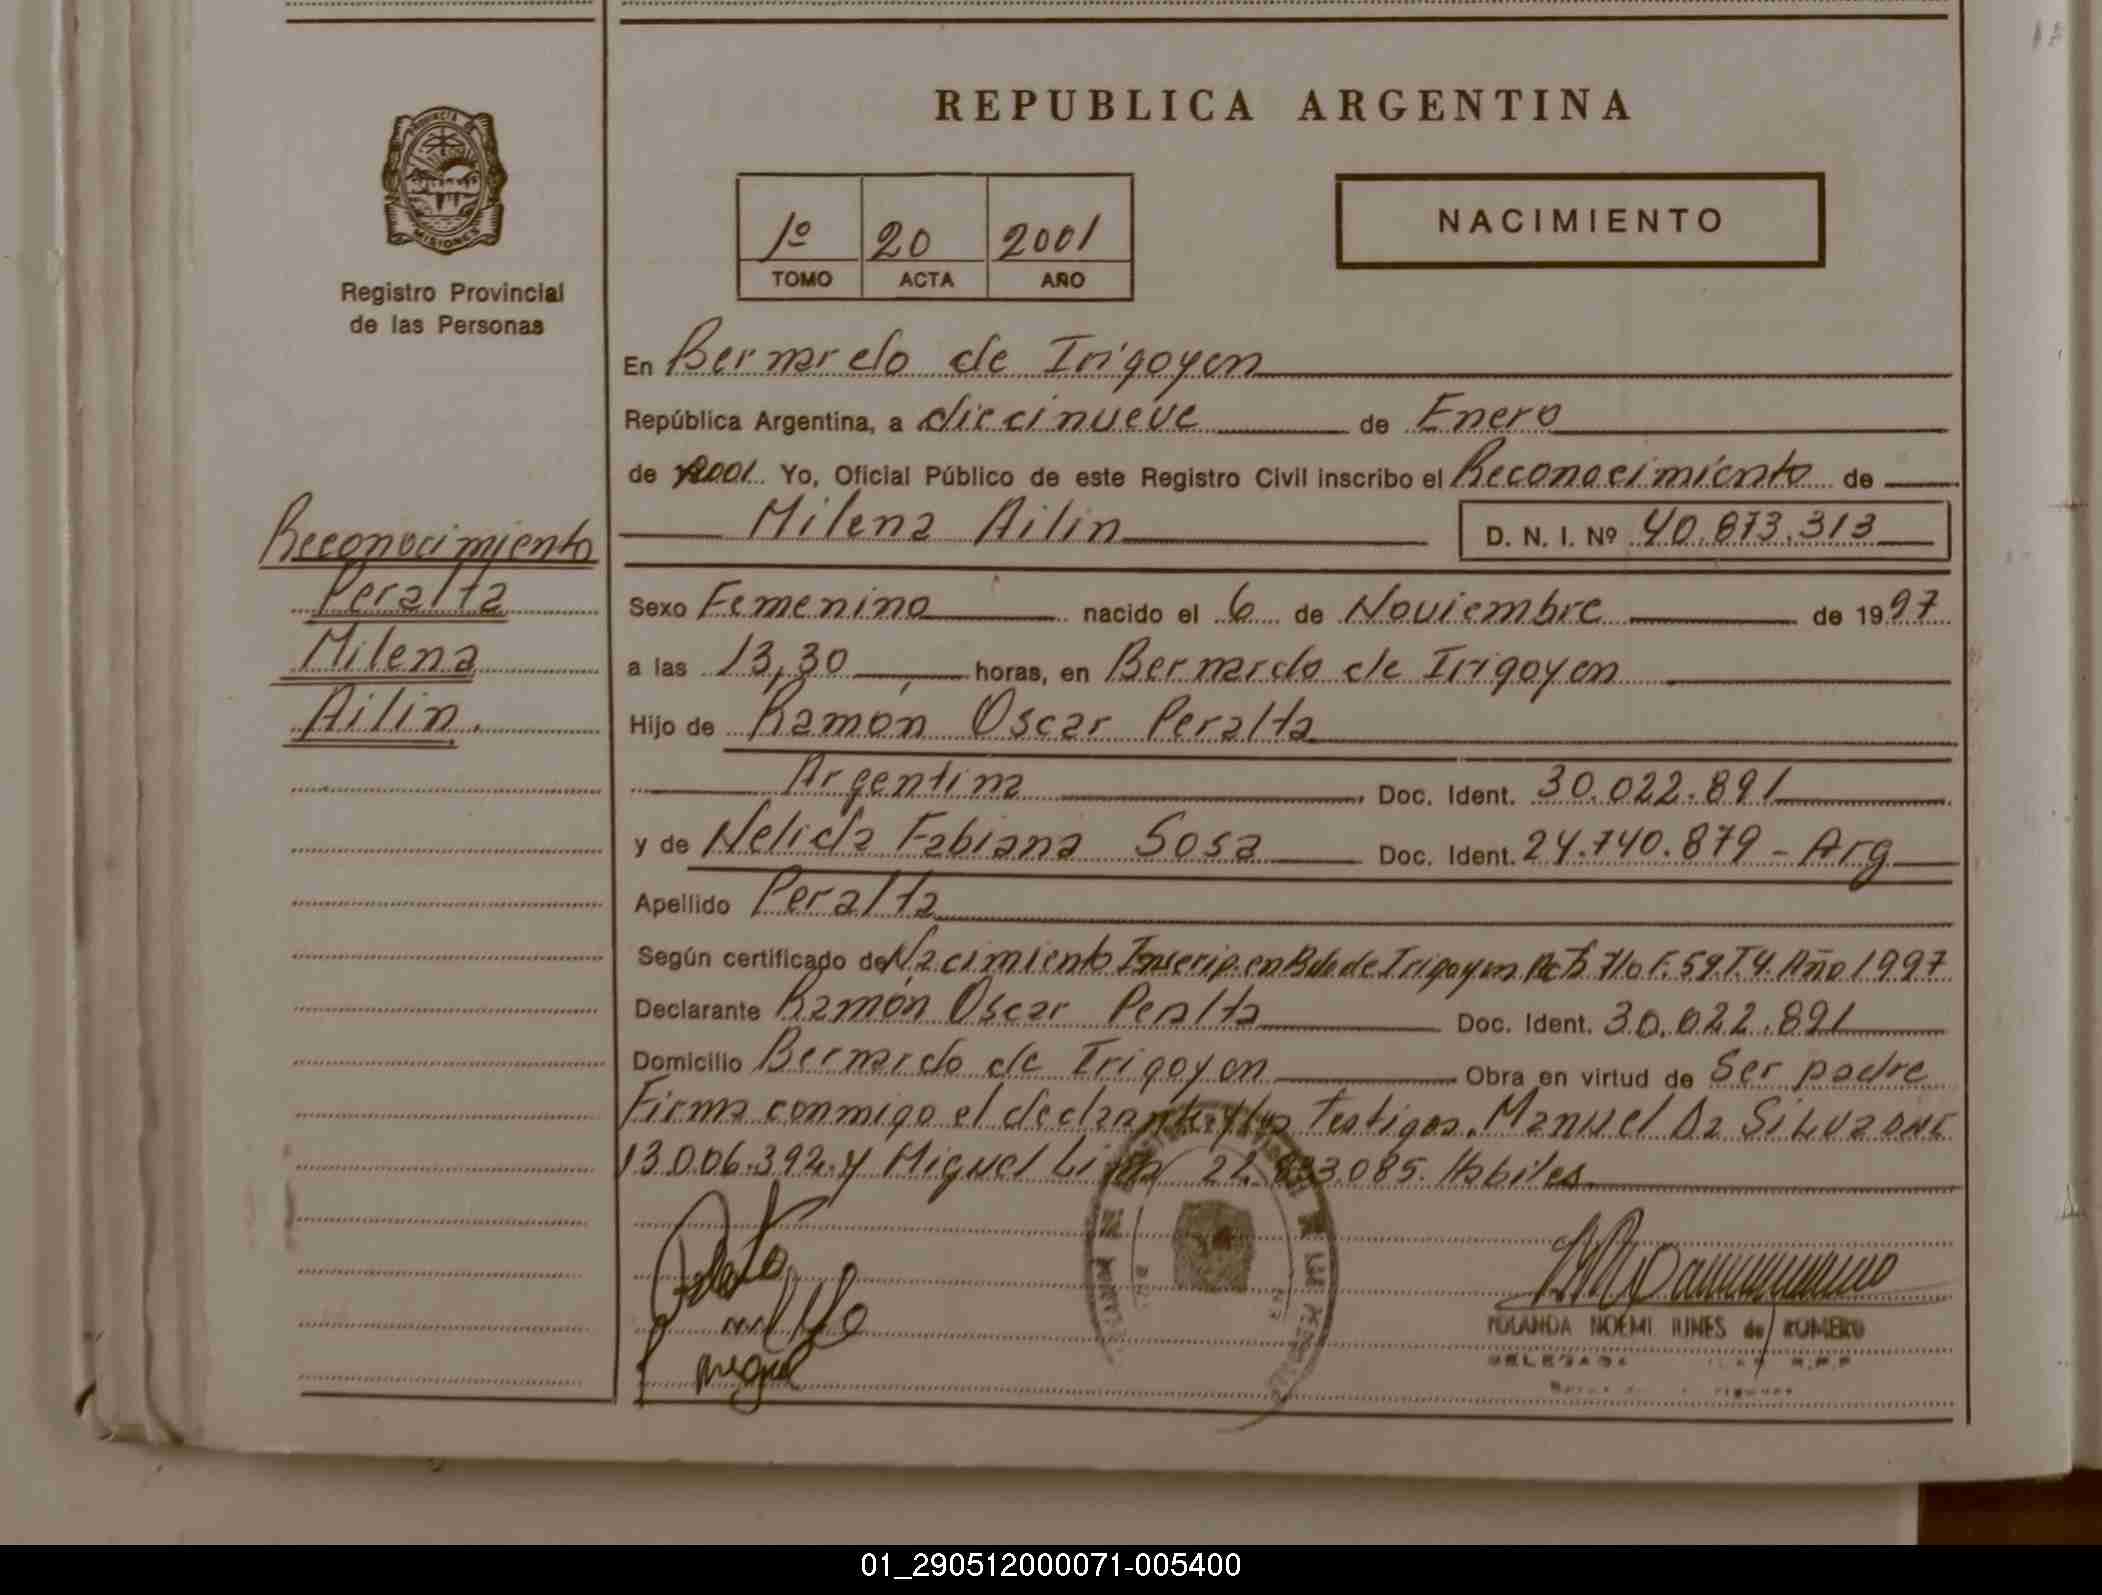 REPUBLICA ARGENTINA
PROVINCIA DE
MISIONES
Registro Provincial
de las Personas
1º 20 2001
TOMO ACTA AÑO
NACIMIENTO
En Bernardo de Irigoyen
República Argentina, a diecinueve de Enero
de 2001 Yo, Oficial Público de este Registro Civil inscribo el Reconocimiento de
Milena Ailin D. N. I. Nº 40.873.313
Reconocimiento
Peralta
Milena
Ailin.
Sexo Femenino nacido el 6 de Noviembre de 1997
a las 13,30 horas, en Bernardo de Irigoyen
Hijo de Ramón Oscar Peralta
Argentina Doc. Ident. 30.022.891
y de Nelida Fabiana Sosa Doc. Ident. 24.740.879 - Arg
Apellido Peralta
Según certificado de Nacimiento Inscrip. en Bdo de Irigoyen Acta 710 F. 59. T. 4. Año 1997
Declarante Ramón Oscar Peralta Doc. Ident. 30.022.891
Domicilio Bernardo de Irigoyen Obra en virtud de Ser padre
Firma conmigo el declarante y los Testigos. Manuel Da Silva DNI
13.006.392. y Miguel Lima 22.833.085. Habiles.
Miguel
YOLANDA NOEMI IUNES de ROMERO
DELEGADA R.P.P
01_290512000071-005400